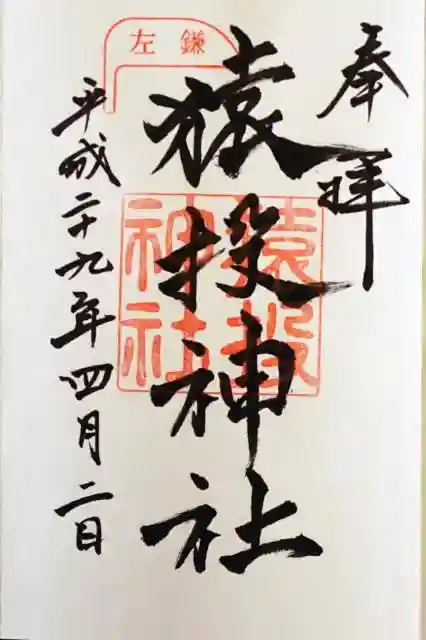 奉拝
左鎌
猿投神社
猿投神社
平成二十九年四月二日